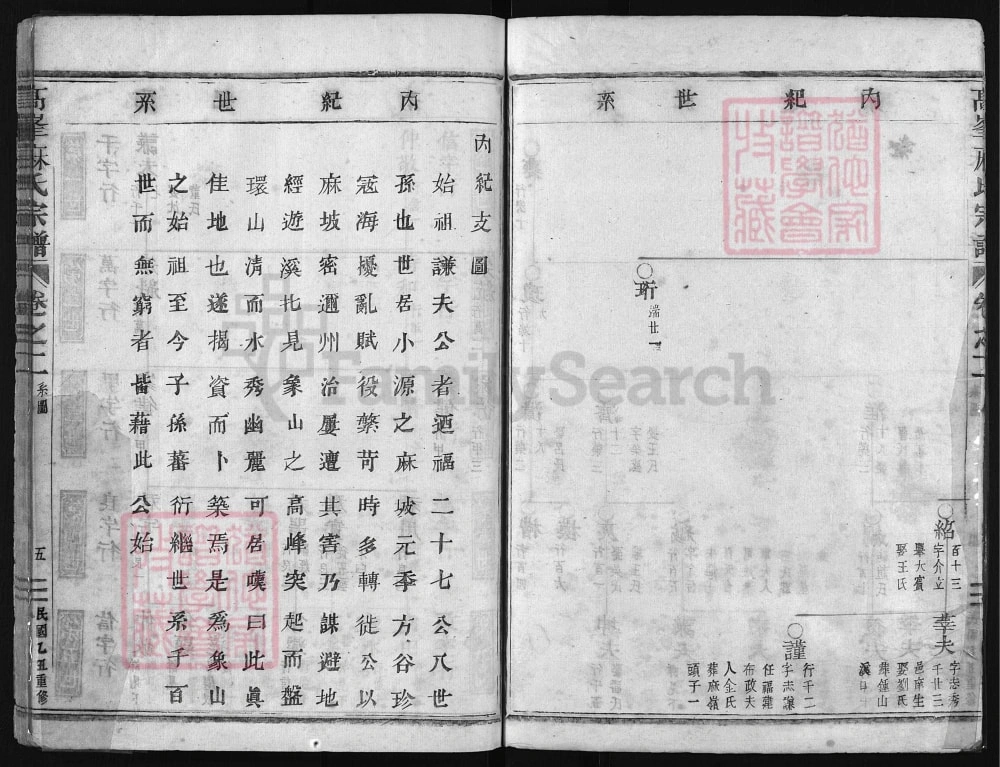 內紀世系
珩
端廿一
紹
百十三
字介立
舉大賓
娶王氏
幸夫
字志考
千廿三
邑庠生
娶劉氏
葬鍾山
謹
行千二
字志謙
任福建
布政夫
人金氏
葬麻嶺
頭子一
內紀世系
內紀支圖
始祖謙夫公者迺福二十七公八世
孫也世居小源之麻坡元季方谷珍
冦海擾亂賦役繁苛時多轉徙公以
麻坡密邇州治屢遭其害乃謀避地
經遊溪北見象山之高峰突起而盤
環山清而水秀幽麗可居嘆曰此眞
佳地也遂揭資而卜築焉是爲象山
之始祖至今子孫蕃衍繼世系千百
世而無窮者皆藉此公始
高峯麻氏宗譜
卷之二
系圖
五
民國乙丑重修
高峯麻氏宗譜
猶他家譜學會收藏
猶他家譜學會收藏
FamilySearch